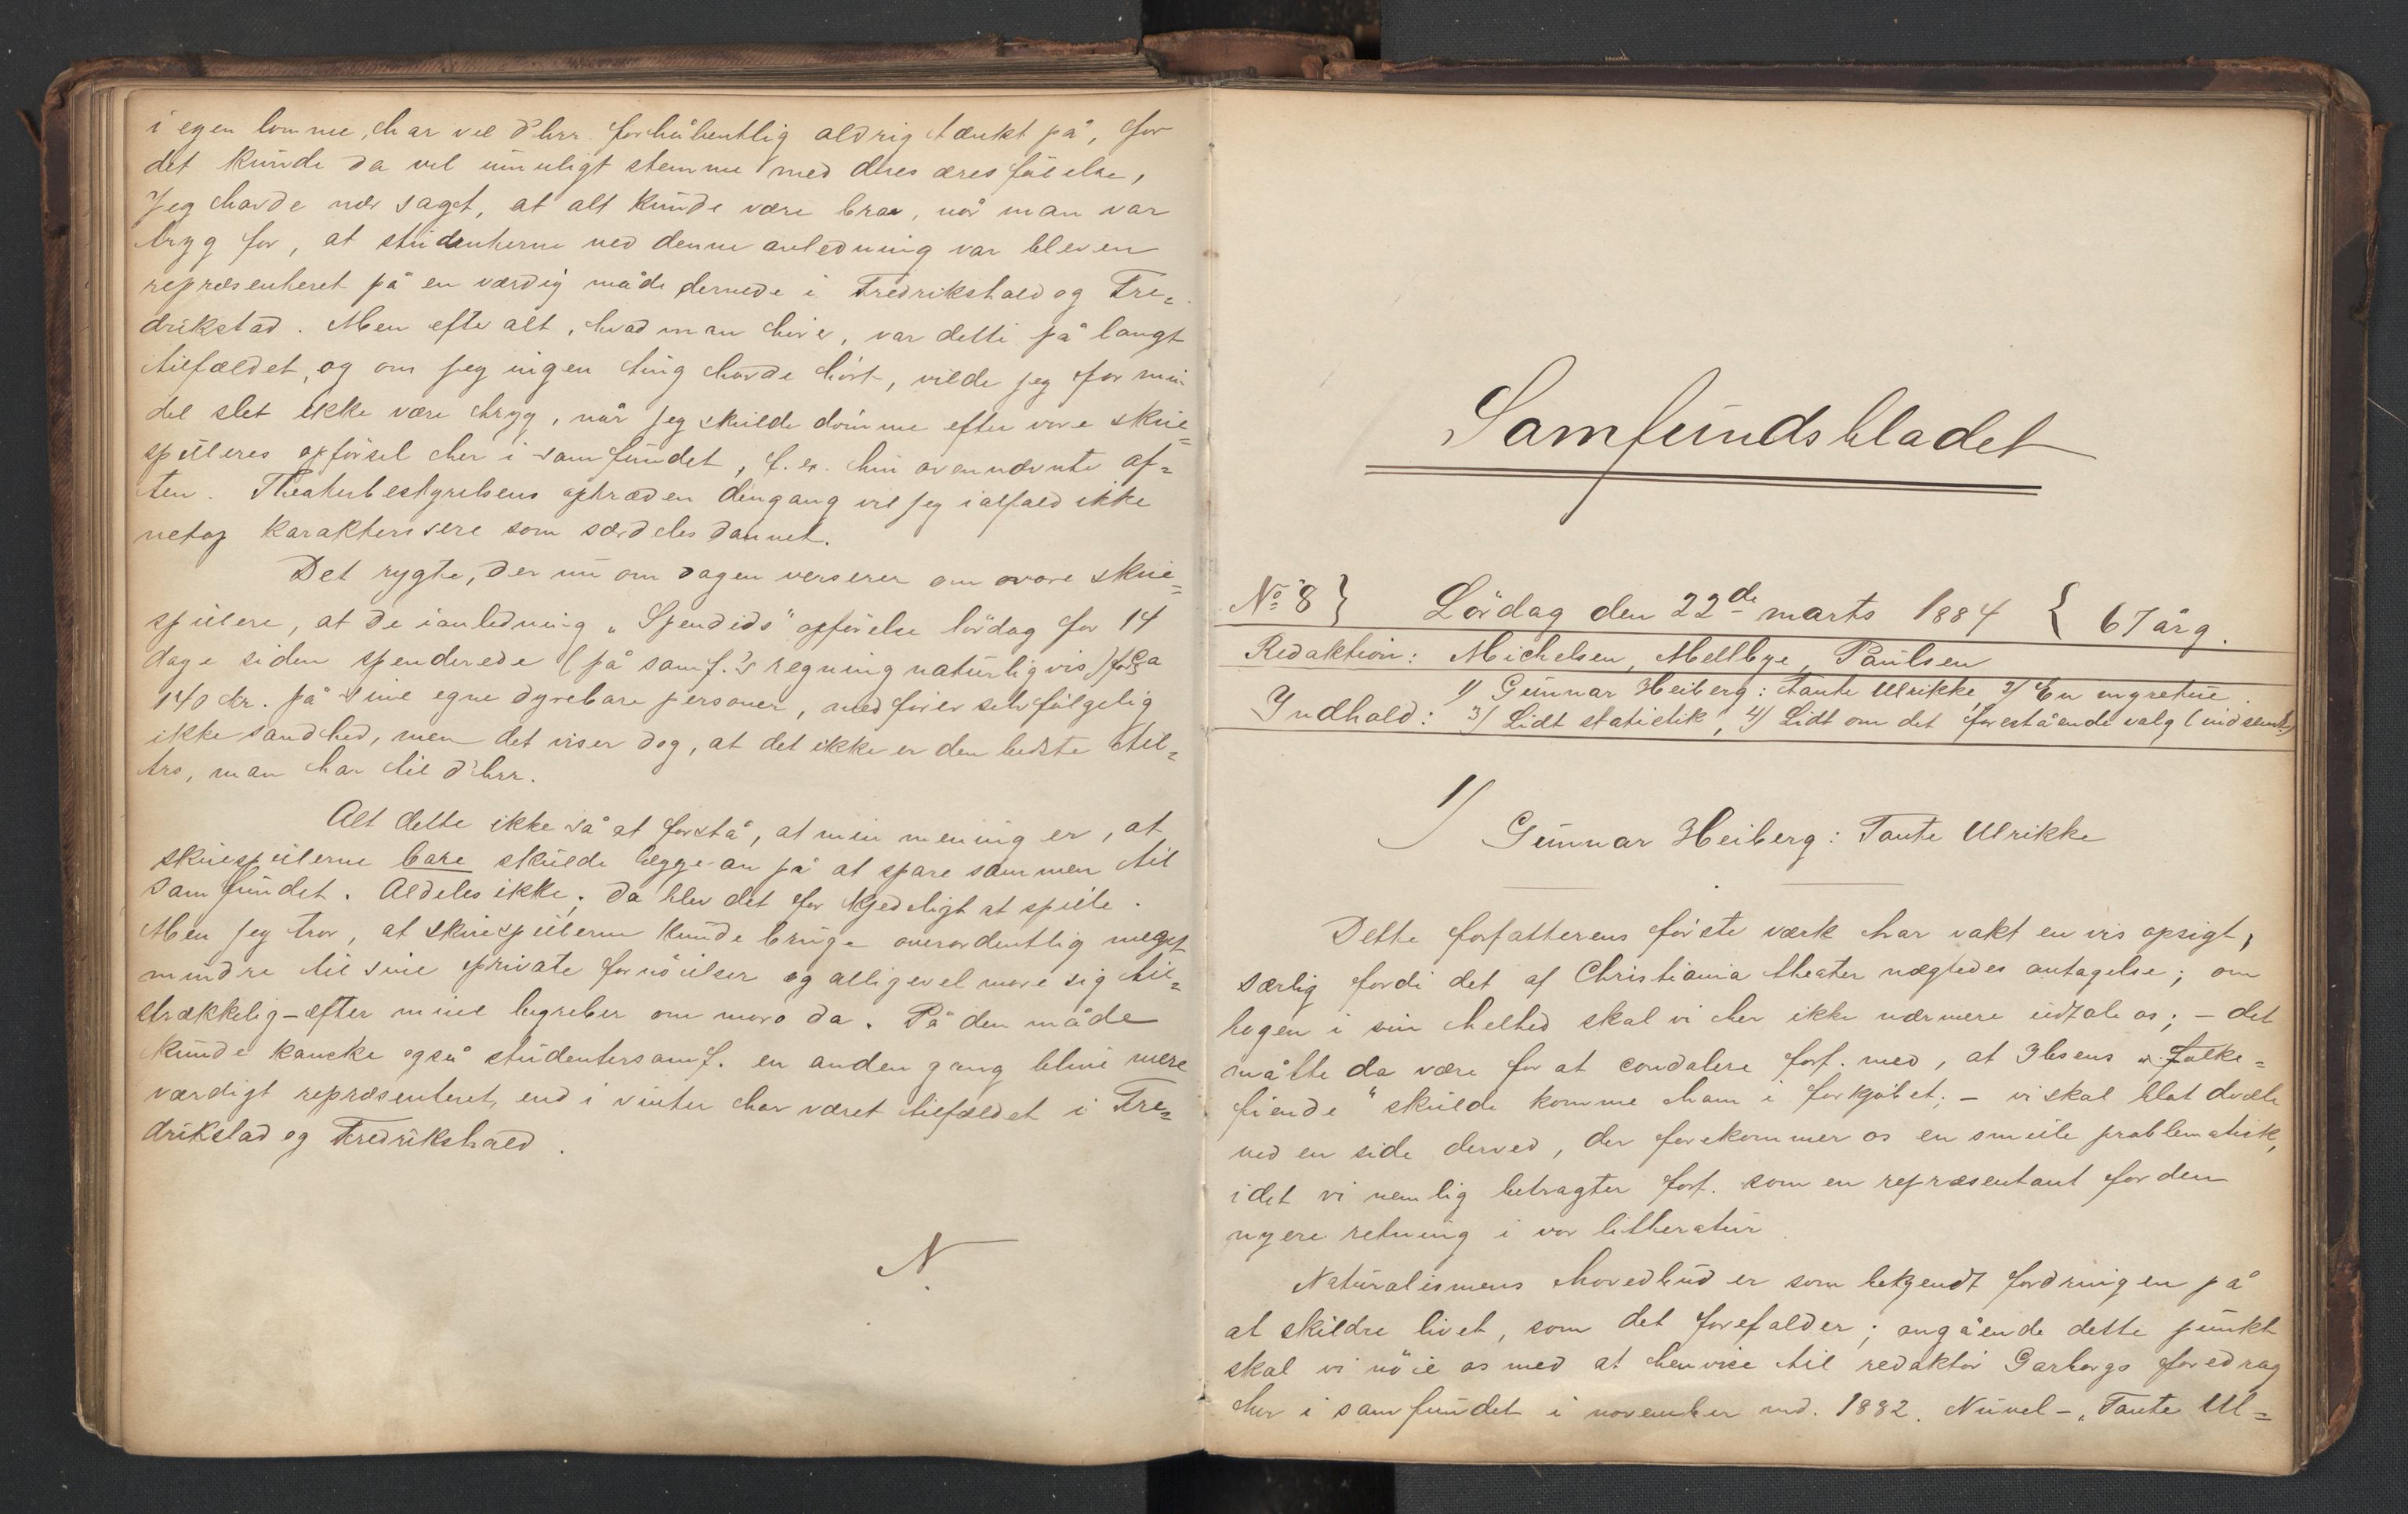 i egen lomme, har vel d'hrr. forhåbentlig aldrig tænkt på, for
det kunde da vel umuligt stemme med deres æresfölelse,
Jeg havde nær saget, at alt kunde være bra, når man var
tryg for, at studenterne ved denne anledning var bleven
repræsenteret på en værdig måde dernede i Fredrikshald og Fre=
drikstad. Men efter alt, hvad man hörer, var dette på langt
tilfældet, og om jeg ingen ting havde hört, vilde jeg for min
del slet ikke være tryg, når jeg skulde dömme efter vore skue=
spilleres opförsel her i samfundet, f. ex. hin ovennævnte af=
ten. Theaterbestyrelsens optræden dengang vil jeg ialfald ikke
netop karakterisere som særdeles dannet.
Det rygte, der nu om dagen verserer om vore skue=
spillere, at de i anledning „Spendids" opförelse lördag for 14
dage siden spenderede (på samf.'s regning naturligvis) for ca
140 kr. på sine egne dyrebare personer, medförer selvfölgelig
ikke sandhed, men det viser dog, at det ikke er den bedste til=
tro, man har til d'hrr.
Alt dette ikke så at forstå, at min mening er, at
skuespillerne bare skulde lægge an på at spare sammen til
samfundet. Aldeles ikke; da blev det for kjedeligt at spille.
Men jeg tror, at skuespillerne kunde bruge overordentlig meget
mindre til sine private fornöielser og alligevel more sig til=
strækkelig – efter mine begreber om moro da. På den måde
kunde kanske også studentersamf. en anden gang blive mere
værdigt repræsenteret, end i vinter har været tilfældet i Fre=
drikstad og Fredrikshald.
N.
Samfundsbladet
No 8 } Lördag den 22de marts 1884 { 67 årg.
Redaktion: Michelsen, Mellbye, Paulsen
Indhold: 1/ Gunnar Heiberg: Tante Ulrikke, 2/ En myretue
3/ Lidt statistik, 4/ Lidt om det forestående valg (indsendt)
1/ Gunnar Heiberg: Tante Ulrikke
Dette forfatterens förste værk har vakt en vis opsigt,
særlig fordi det af Christiania theater nægtedes antagelse; om
bogen i sin helhed skal vi her ikke nærmere udtale os; – det
måtte da være for at condolere forf. med, at Ibsens „Folke=
fiende" skulde komme ham i forkjöbet; – vi skal blot dvæle
ved en side derved, der forekommer os en smule problematisk,
idet vi nemlig betragter forf. som en repræsentant for den
nyere retning i vor litteratur.
Naturalismens hovedbud er som bekjendt fordringen på
at skildre livet, som det forefalder; angående dette punkt
skal vi nöie os med at henvise til redaktör Garborgs foredrag
her i samfundet i november md. 1882. Nuvel – „Tante Ul=